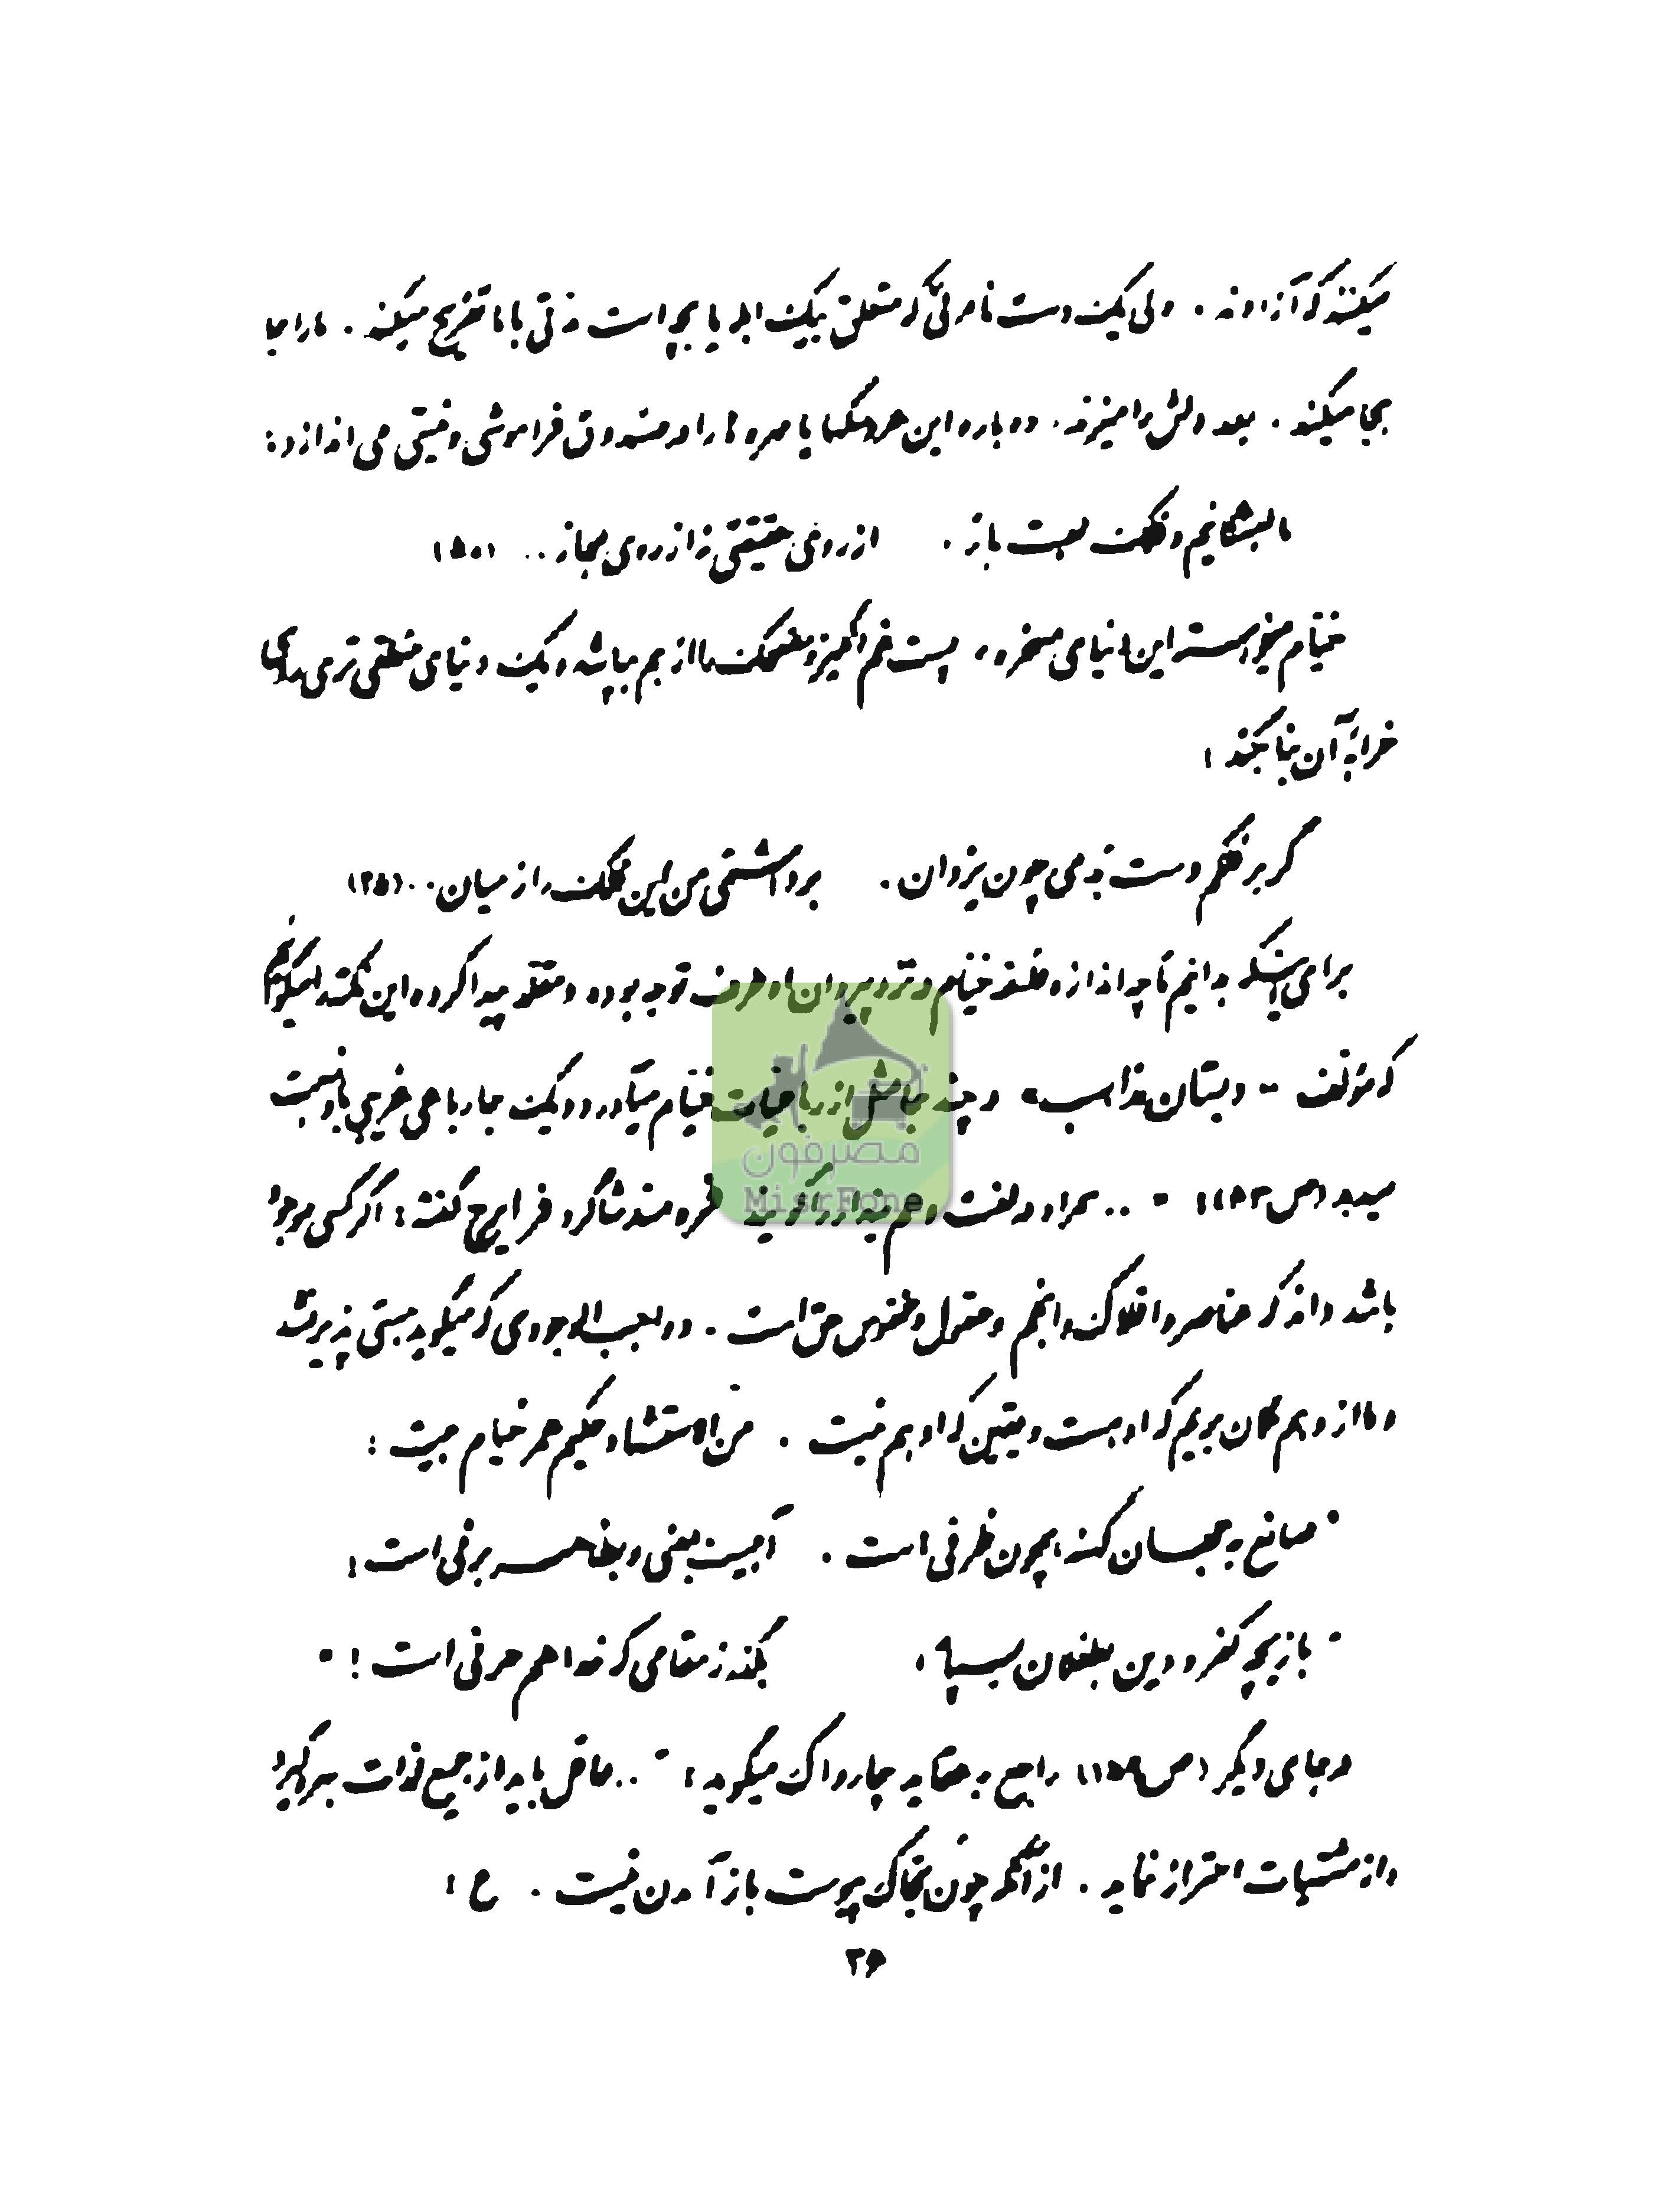 میکنند که آزادند. ولی یک دست نامرئی که متعلق بیک ابله یا بچه است مدتی با ما تفریح میکند. مارا جا
بجا میکند، بعد دلش را میزند، دوباره این عروسکها یا مهره ها را در صندوق فراموشی و نیستی می اندازد:
ما لعبتگانیم و فلک لعبت باز، از روی حقیقتی نه از روی مجاز.. (۵۰)
خیام میخواسته این دنیای مسخره، پست غم انگیز و مضحک را از هم بپاشد و یک دنیای منطقی تری روی
خرابهٔ آن بنا بکند:
گر بر فلکم دست بدی چون یزدان، برداشتمی من این فلک را ز میان.. (۲۵)
برای اینکه بدانیم تا چه اندازه فلسفه خیام در نزد پیروان او طرف توجه بوده و مقلد پیدا کرده این نکته را میگوئیم
که مؤلف "دبستان مذاهب" در چند جا مثل از رباعیات خیام میآورد و یک جا رباعی غریبی باو نسبت
میدهد (ص ۱۴۲) "..سمراد در لغت وهم و پندار را گویند فره مند شاگرد فر ایرج گفته: اگر کسی موجود
باشد داند که عناصر و افلاک و انجم و عقول و نفوس حق است. و واجب الوجودی که میگوید هستی پذیر نشد
و ما از وهم گمان بریم که او هست و یقین که او هم نیست. من الاستشهاد حکیم عمر خیام بیت:
"صانع به جهان کهنه همچون ظرفی است، آبیست بمعنی و بظاهر برفی است؛
"بازیچه کفر و دین بطفلان بسپار، بگذر ز مقامی که خدا هم حرفی است!"
در جای دیگر (ص ۱۵۹) راجع به عقاید چارواک میگوید: "..عاقل باید از جمیع لذات بهره گیرد
و از مشتهیات احتراز ننماید. از آنکه چون بخاک پیوست باز آمدن نیست. ع:
۲۶
مصرفون
MisrFone